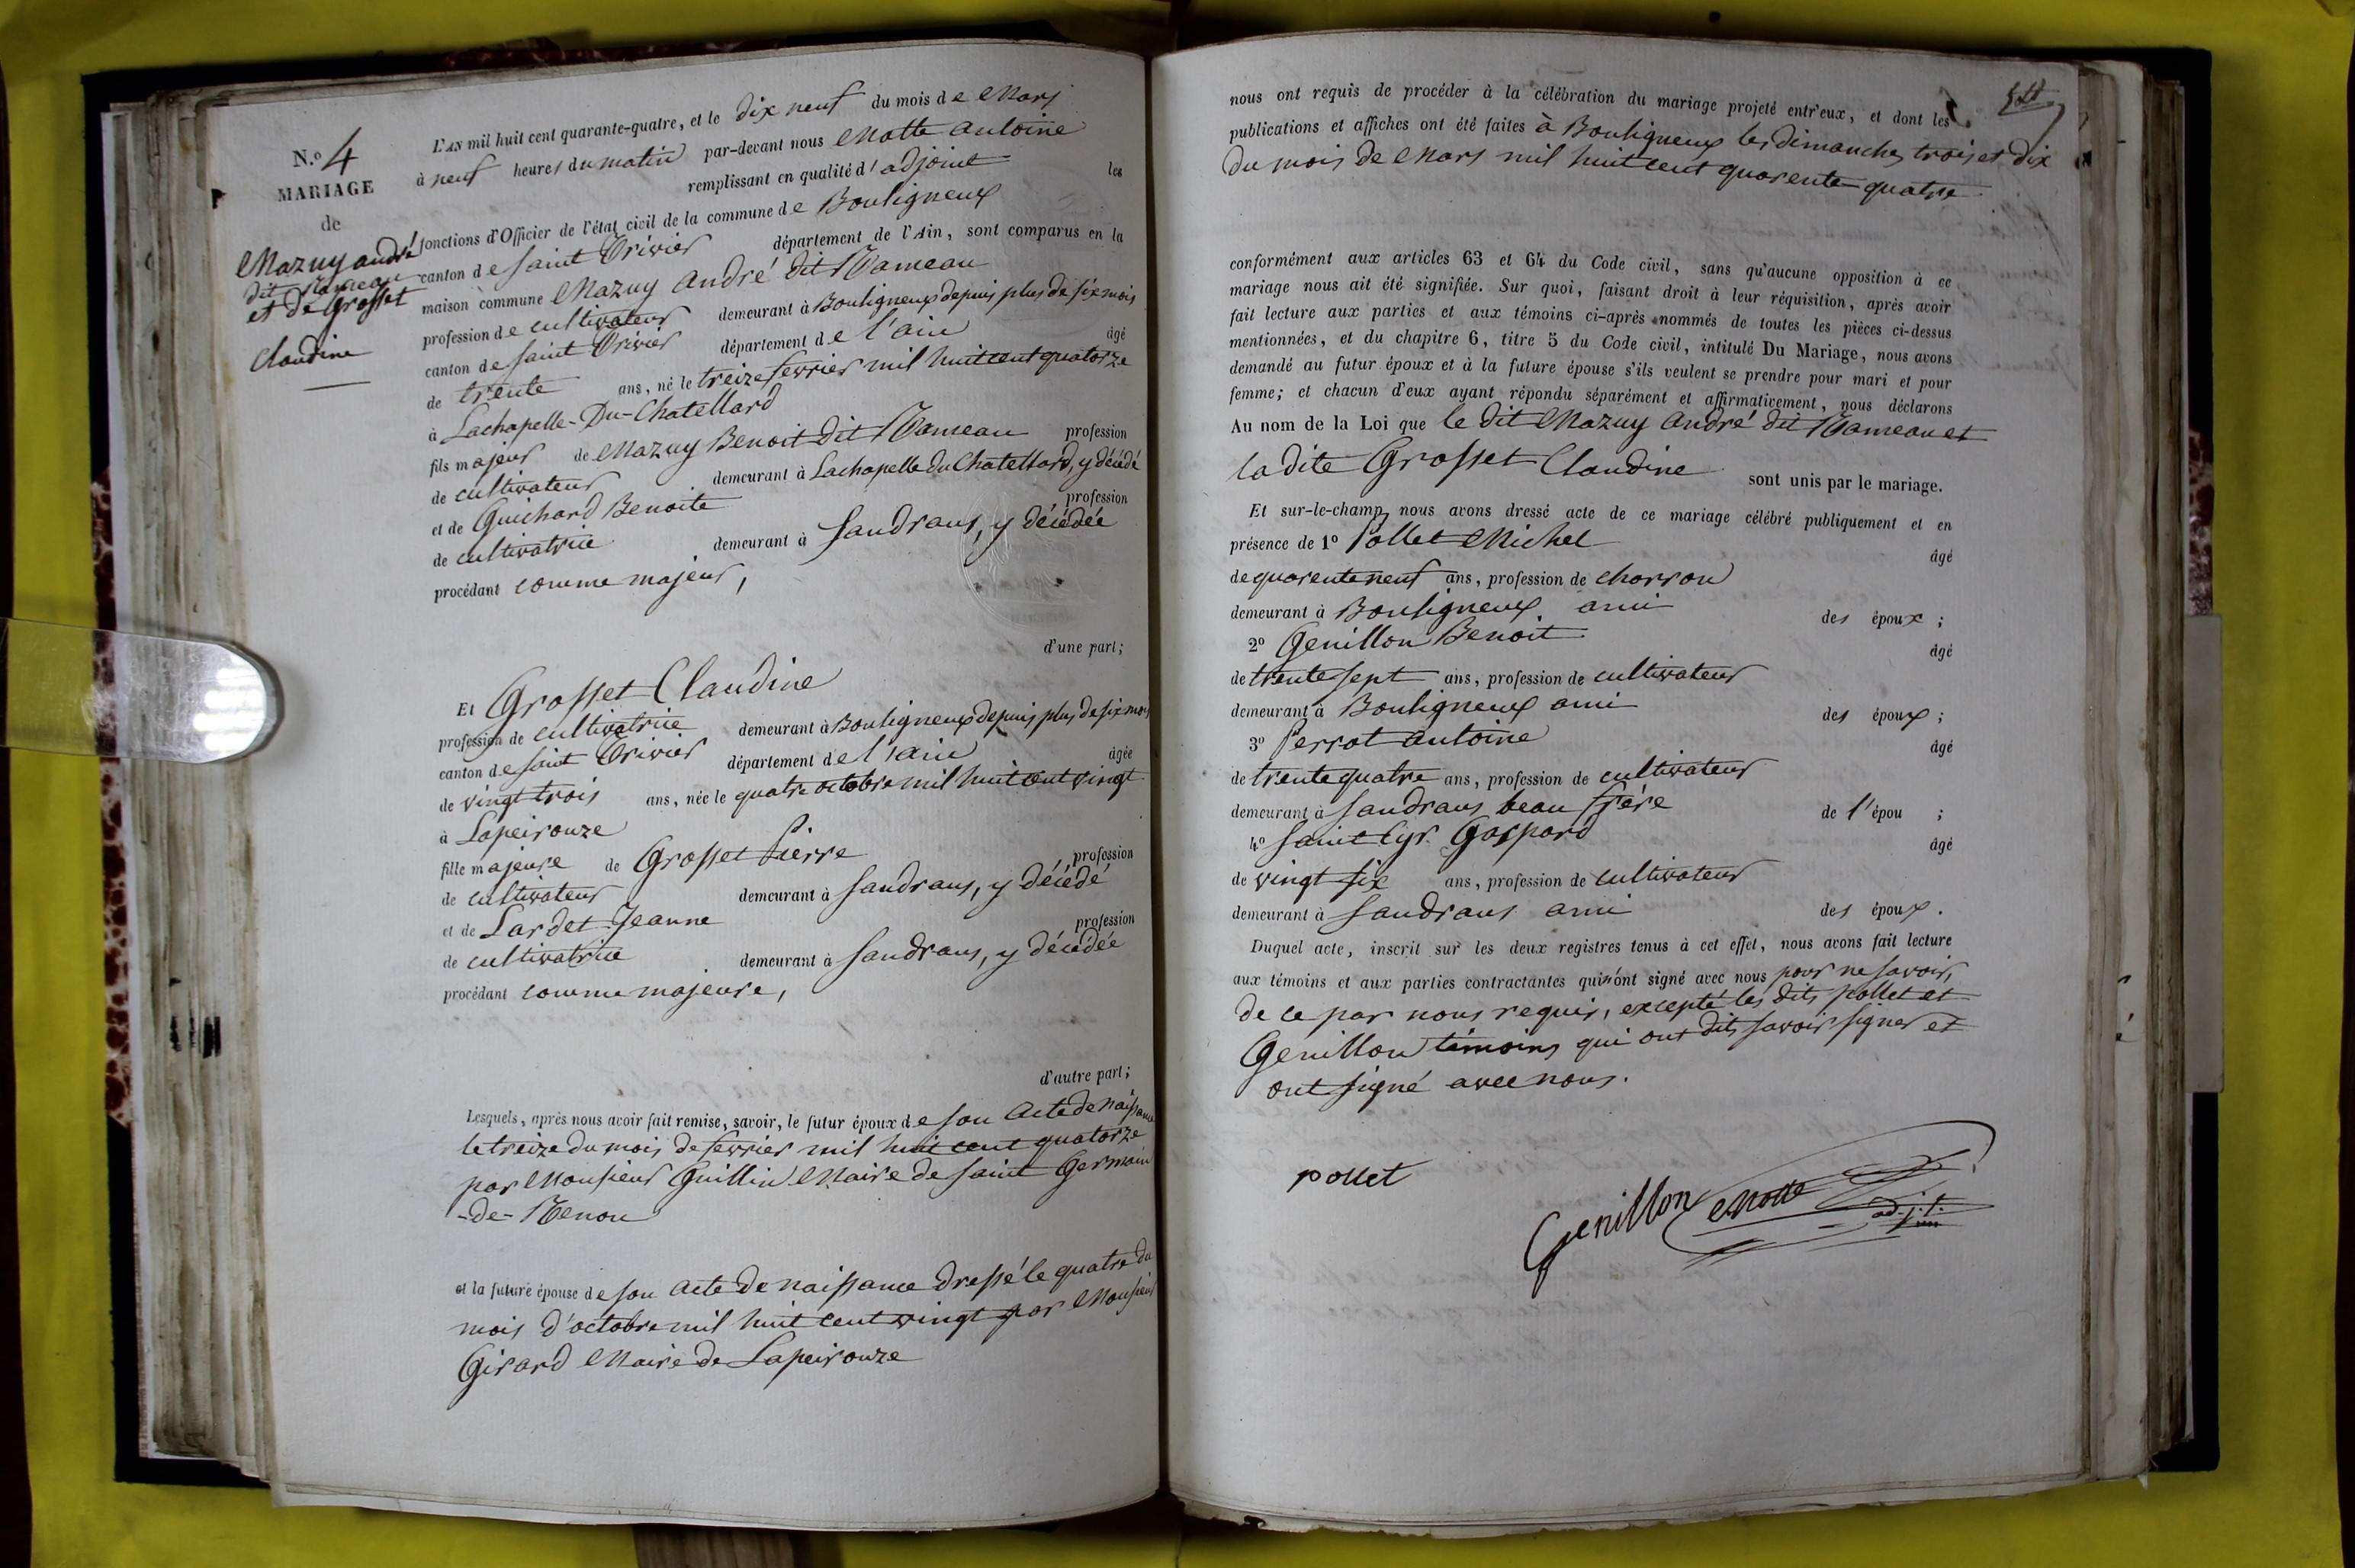 N.º 4
MARIAGE
de
Mazuy andré
dit Rameau
et de Grosset
Claudine
L'AN mil huit cent quarante-quatre, et le dix neuf du mois de Mars
à neuf heures du matin par-devant nous Motte antoine
remplissant en qualité d'adjoint les
fonctions d'Officier de l'état civil de la commune de Bouligneux
canton de saint Trivier département de l'Ain, sont comparus en la
maison commune Mazuy André dit Rameau
profession de cultivateur demeurant à Bouligneux depuis plus de six mois
canton de saint Trivier département de l'ain âgé
de trente ans, né le treize fevrier mil huit cent quatorze
à Lachapelle-Du-Chatellard
fils majeur de Mazuy Benoit dit Rameau profession
de cultivateur demeurant à Lachapelle du Chatellard, y décédé
et de Guichard Benoite profession
de cultivatrice demeurant à Sandrans, y décédée
procédant comme majeur,
d'une part;
Et Grosset Claudine
profession de cultivatrice demeurant à Bouligneux depuis plus de six mois
canton de saint Trivier département de l'ain âgée
de vingt trois ans, née le quatre octobre mil huit cent vingt
à Lapeirouze
fille majeure de Grosset Pierre profession
de cultivateur demeurant à Sandrans, y décédé
et de Lardet Jeanne profession
de cultivatrice demeurant à Sandrans, y décédée
procédant comme majeure,
d'autre part;
Lesquels, après nous avoir fait remise, savoir, le futur époux de son acte de naissance
le treize du mois de fevrier mil huit cent quatorze
par Monsieur Guillin Maire de saint Germain
-de-Renon
et la future épouse de son acte de naissance dressé le quatre du
mois d'octobre mil huit cent vingt par Monsieur
Girard Maire de Lapeirouze
nous ont requis de procéder à la célébration du mariage projeté entr'eux, et dont les
publications et affiches ont été faites à Bouligneux les dimanches trois et dix
du mois de Mars mil huit cent quarente-quatre
conformément aux articles 63 et 64 du Code civil, sans qu'aucune opposition à ce
mariage nous ait été signifiée. Sur quoi, faisant droit à leur réquisition, après avoir
fait lecture aux parties et aux témoins ci-après nommés de toutes les pièces ci-dessus
mentionnées, et du chapitre 6, titre 5 du Code civil, intitulé Du Mariage, nous avons
demandé au futur époux et à la future épouse s'ils veulent se prendre pour mari et pour
femme; et chacun d'eux ayant répondu séparément et affirmativement, nous déclarons
Au nom de la Loi que le dit Mazuy André dit Rameau et
la dite Grosset Claudine sont unis par le mariage.
Et sur-le-champ nous avons dressé acte de ce mariage célébré publiquement et en
présence de 1º Pollet Michel âgé
de quarente neuf ans, profession de charron
demeurant à Bouligneux ami des époux;
2º Genillon Benoit âgé
de trente sept ans, profession de cultivateur
demeurant à Bouligneux ami des époux;
3º Perrot antoine âgé
de trente quatre ans, profession de cultivateur
demeurant à Sandrans beau frère de l'épou ;
4º Saint Cyr Gaspard âgé
de vingt six ans, profession de cultivateur
demeurant à Sandrans ami des époux.
Duquel acte, inscrit sur les deux registres tenus à cet effet, nous avons fait lecture
aux témoins et aux parties contractantes qui n'ont signé avec nous pour ne savoir,
de ce par nous requis, excepté les dits pollet et
Genillon témoins qui ont dits savoir signer et
ont signé avec nous.
pollet
Genillon Motte
adjt.